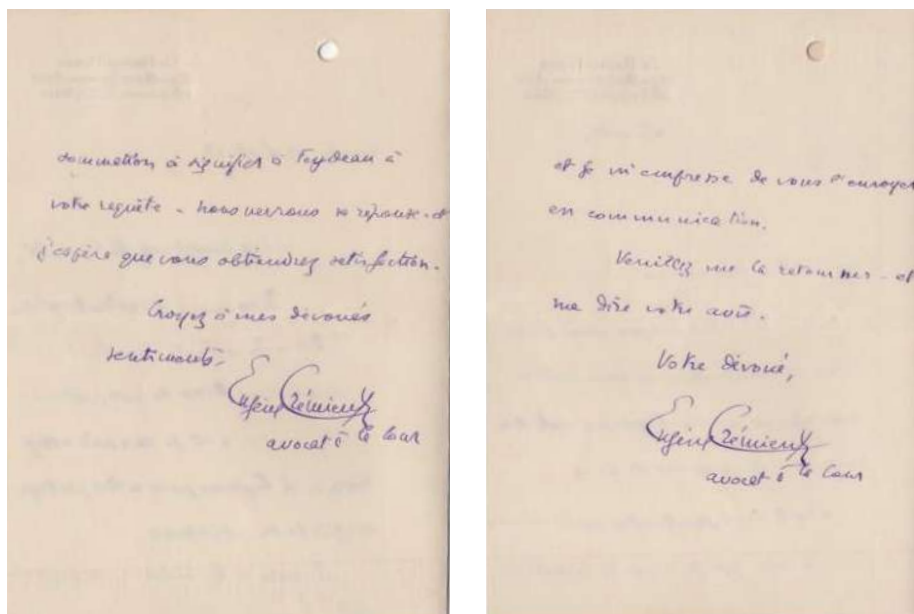 sommation à signifier à Feydeau à
votre requête - nous verrons sa réponse - et
j'espère que vous obtiendrez satisfaction.
Croyez à mes dévoués
sentiments.
Eugène Crémieux
avocat à la Cour
et je m'empresse de vous l'envoyer
en communication.
Veuillez me la retourner - et
me dire votre avis.
Votre dévoué,
Eugène Crémieux
avocat à la Cour